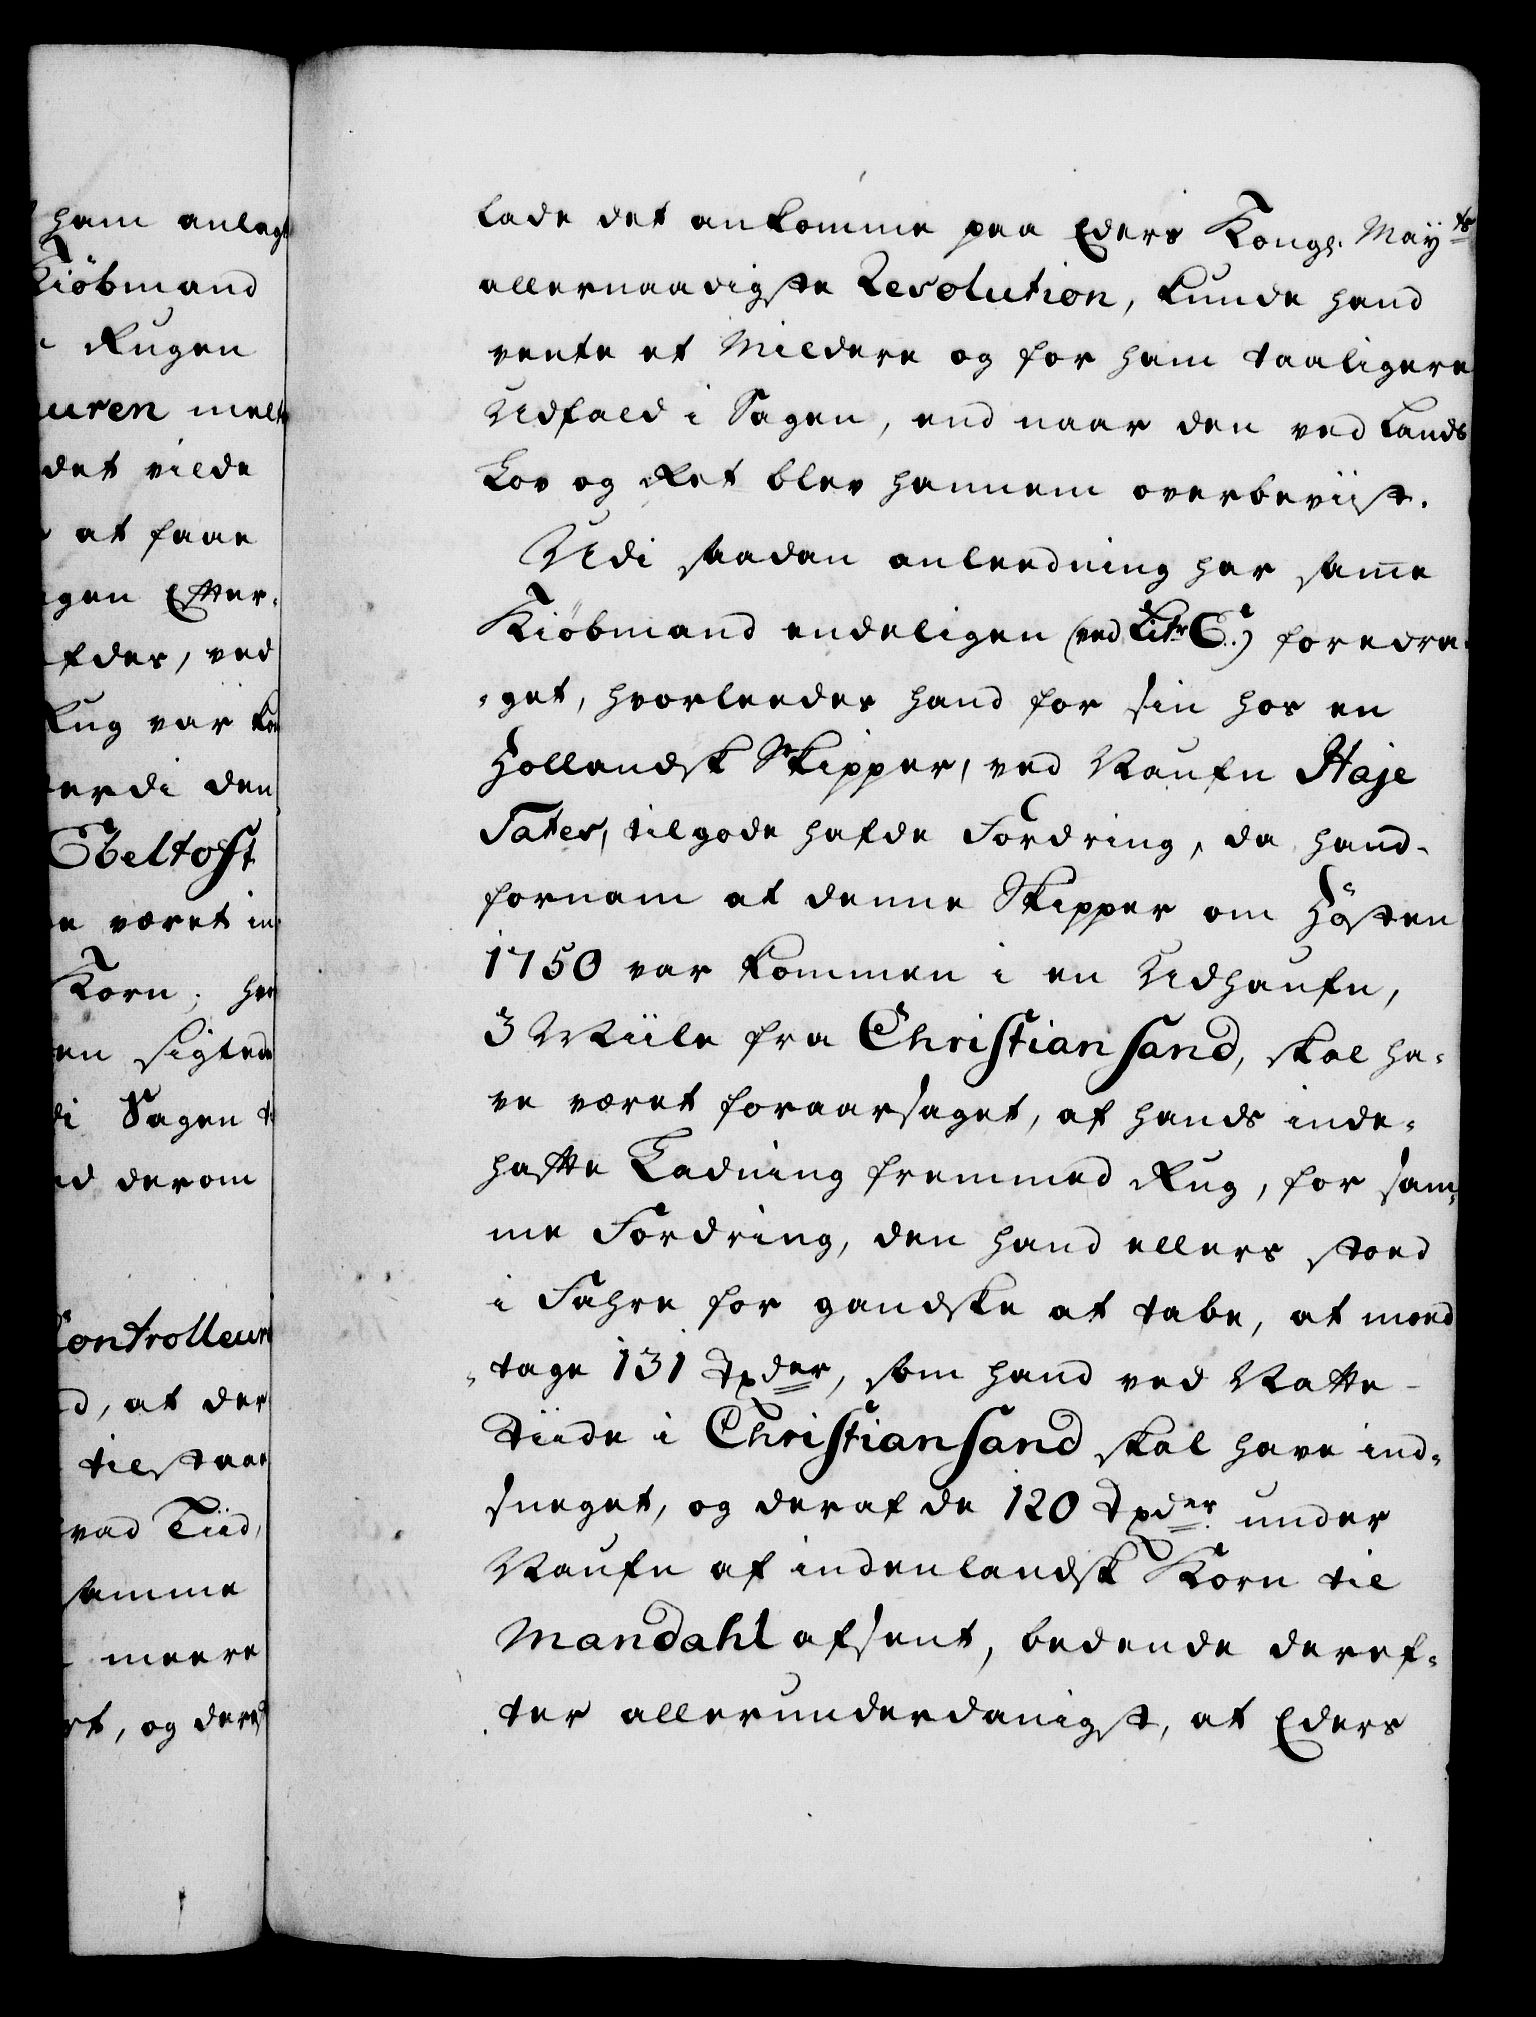 ham anlagt
Kiöbmand
Rugen
uren meldt
det vilde
at faae
gen Efter-
fdes, ved
Rug var kom
erdi den
Ebeltoft
e været in-
Korn; hvor
en sigtede
di Sagen
d derom
Controlleur
d, at der
tilstaar
vad Tiid,
samme
meere
rt, og deref
lade det ankomme paa Eders Kongl. May<sup>ts</sup>
allernaadigste Resolution, kunde hand
vente et Mildere og for ham taaligere
Udfald i Sagen, end naar den ved Lands
Lov og Ret blev hannem overbeviist.
Udi saadan anleedning har sam̅e
Kiöbmand endeligen (ved Litr C.) foredra-
-get, hvorleedes hand for sin hos en
Hollandsk Skipper, ved Naufn Haje
Tates, tilgode hafde Fordring, da hand
fornam at denne Skipper om Hösten
1750 var kommen i en Udhaufn,
3 Miile fra Christiansand, skal ha-
ve været foraarsaget, af hands inde-
hafte Ladning fremmed Rug, for sam-
me Fordring, den hand ellers stoed
i Fahre for gandske at tabe, at moed
-tage 131 Tdr, som hand ved Natte-
Tiide i Christiansand skal have ind-
sneget, og deraf de 120 Tdr under
Naufn af indenlandsk Korn til
Mandahl afsent, bedende deref-
ter allerunderdanigst, at Eders